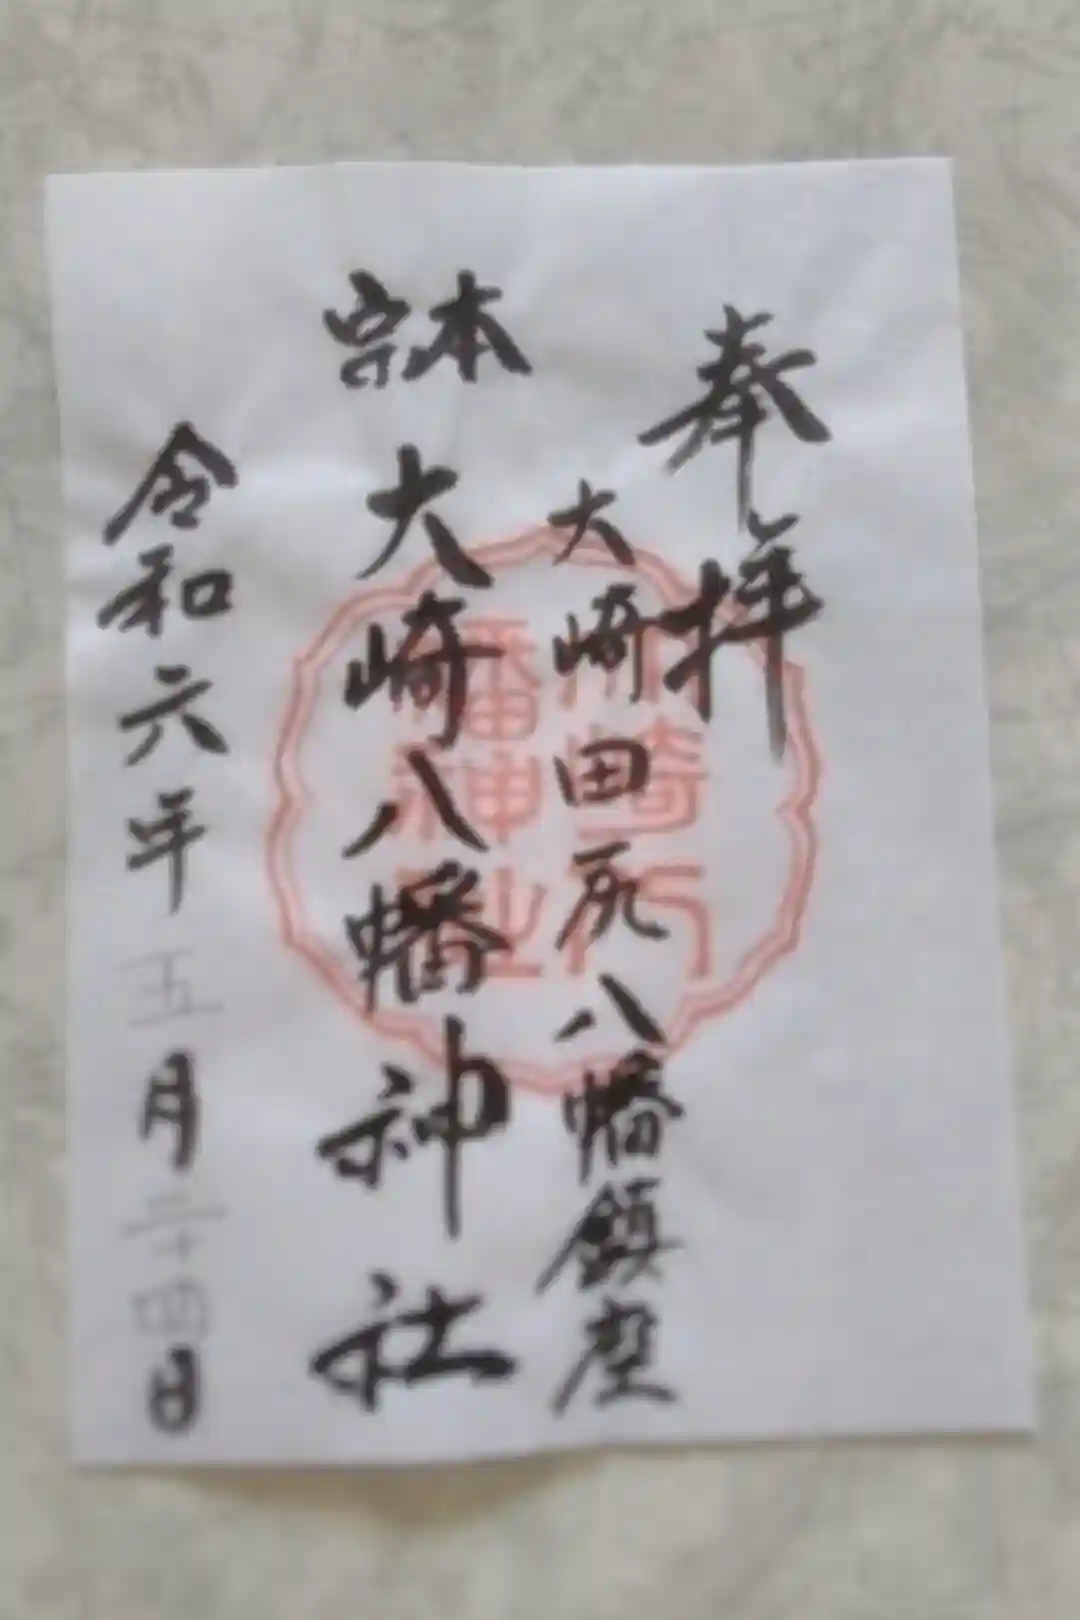 奉拝
大崎田尻八幡鎮座
本宗
大崎八幡神社
令和六年五月二十四日
大崎八
幡神社